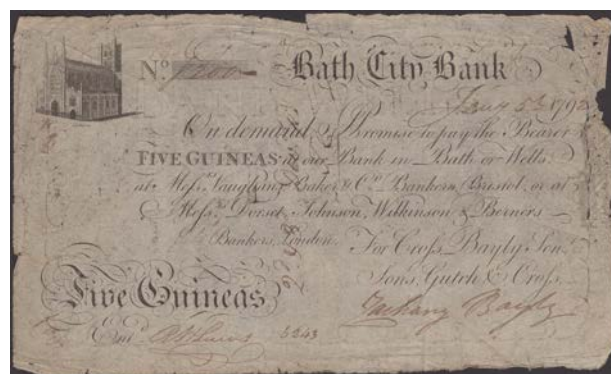 No. Bath City Bank
On demand I Promise to pay the Bearer
FIVE GUINEAS at our Bank in Bath or Wells
at Messrs. Vaughan Baker & Co. Bankers, Bristol, or at
Messrs. Dorset, Johnson, Wilkinson & Berners
Bankers, London. For Cross, Bayly Son,
Sons, Gutch & Cross
Five Guineas
Zachary Bayly
Entd. 5243